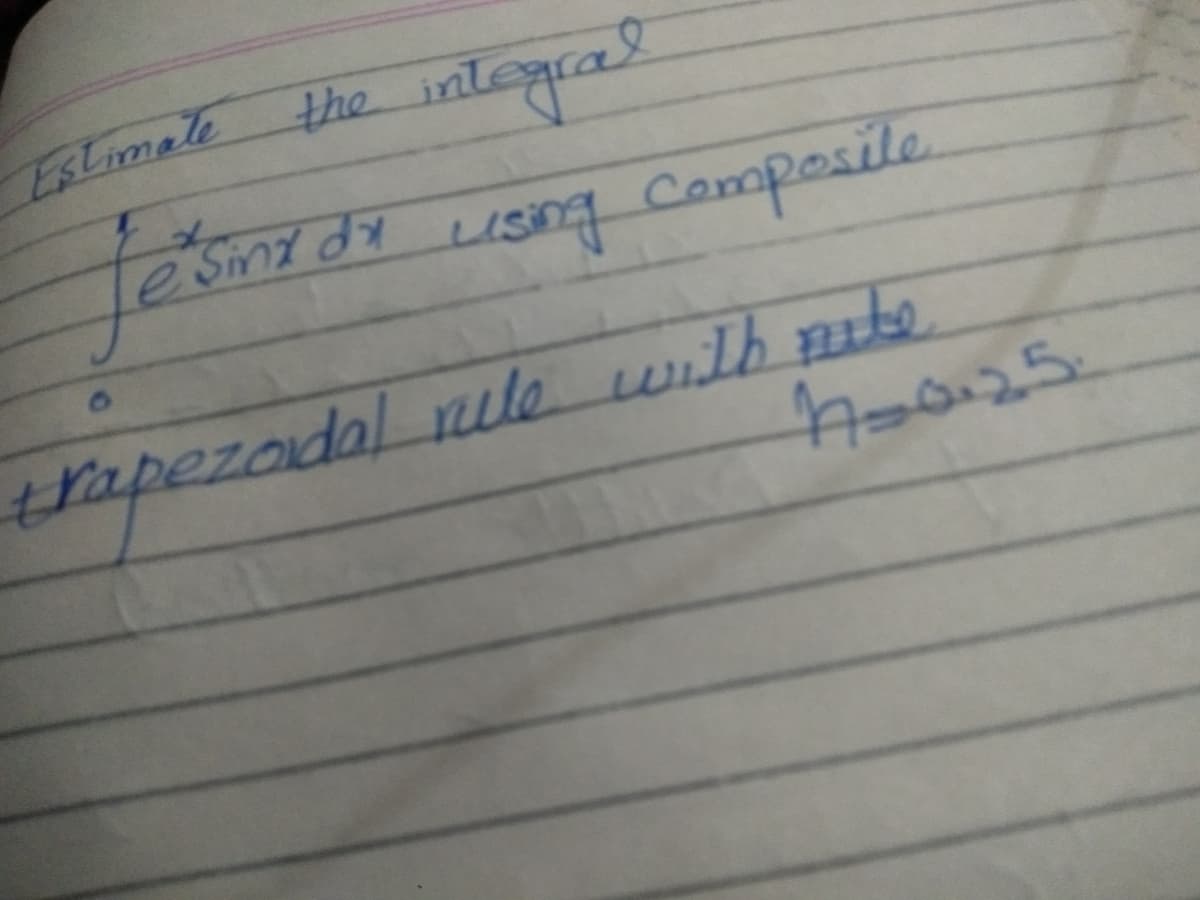 Estimate the integral
∫₀¹ eˣ Sinx dx using Composite
trapezoidal rule with
h=0.25.